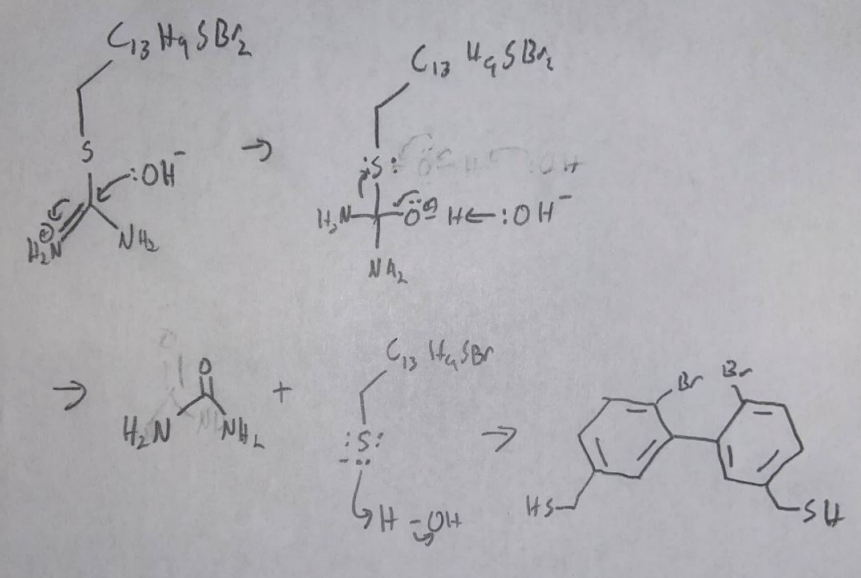 C13H9SBr2
S
:OH-
H2N
⊕
NH2
→
C13H9SBr2
:S:
H2N
O
H
:OH-
NH2
→
O
H2N
NH2
+
C13H9SBr
:S:
H-OH
→
Br
Br
HS
SH